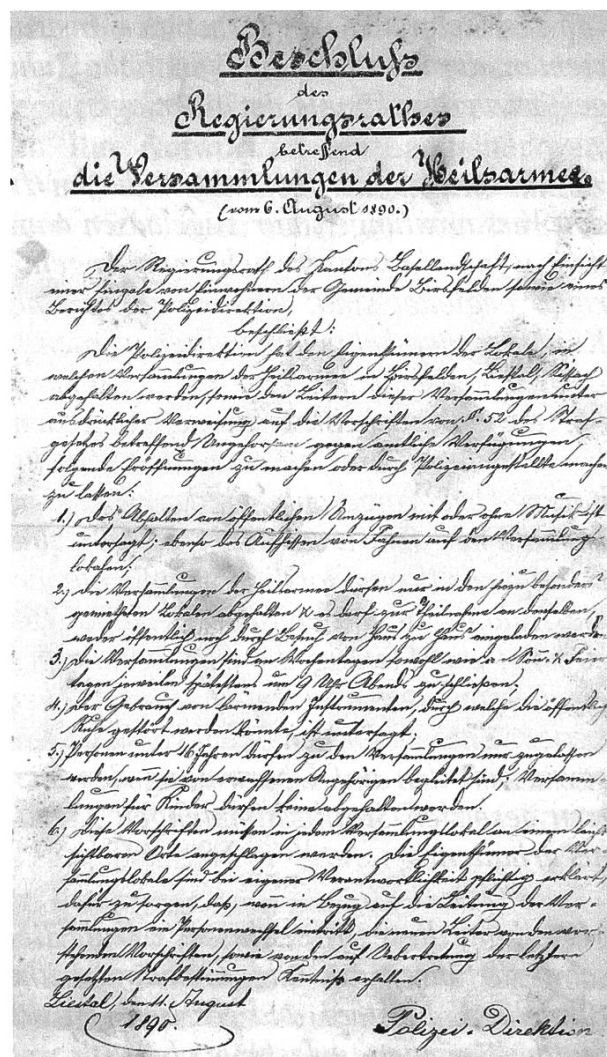 Beschluß
des
Regierungsrathes
betreffend
die Versammlungen der Heilsarmee.
(vom 6. August 1890.)
Der Regierungsrath des Kantons Basellandschaft, nach Einsicht
einer Eingabe von Einwohnern der Gemeinde Birsfelden sowie eines
Berichtes der Polizeidirektion,
beschließt:
Die Polizeidirektion hat den Eigenthümern der Lokale, in
welchen Versammlungen der Heilsarmee in Birsfelden, Liestal, Sissach
abgehalten werden, sowie den Leitern dieser Versammlungen unter
ausdrücklicher Verweisung auf die Vorschriften von §. 52 des Straf-
gesetzes betreffend Ungehorsam gegen amtliche Verfügungen
folgende Eröffnungen zu machen oder durch Polizeiangestellte machen
zu lassen:
1.) Das Abhalten von öffentlichen Umzügen mit oder ohne Musik ist
untersagt; ebenso das Aufhissen von Fahnen auf den Versammlungs-
lokalen;
2.) Die Versammlungen der Heilsarmee dürfen nur in den hiezu besonders
gemietheten Lokalen abgehalten & es darf zur Theilnahme an denselben,
weder öffentlich noch durch Besuch von Haus zu Haus eingeladen werden.
3.) Die Versammlungen sind an Wochentagen sowohl wie an Sonn- & Feier-
tagen jeweilen spätestens um 9 Uhr Abends zu schliessen;
4.) Der Gebrauch von lärmenden Instrumenten, durch welche die öffentliche
Ruhe gestört werden könnte, ist untersagt.
5.) Personen unter 16 Jahren dürfen zu den Versammlungen nur zugelassen
werden, wenn sie von erwachsenen Angehörigen begleitet sind; Versamm-
lungen für Kinder dürfen keine abgehalten werden.
6.) Diese Vorschriften müssen in jedem Versammlungslokal an einem leicht
sichtbaren Orte angeschlagen werden. Die Eigenthümer der Ver-
samlungslokale sind bei eigener Verantwortlichkeit pflichtig erklärt,
dafür zu sorgen, daß, wenn in Bezug auf die Leitung der Ver-
samlungen ein Personenwechsel eintritt, die neuen Leiter von den vor-
stehenden Vorschriften, sowie von den auf Uebertretung der letztern
gesetzten Strafbestimmungen Kentniß erhalten.
Liestal, den 11. August
1890.
Polizei-Direktion